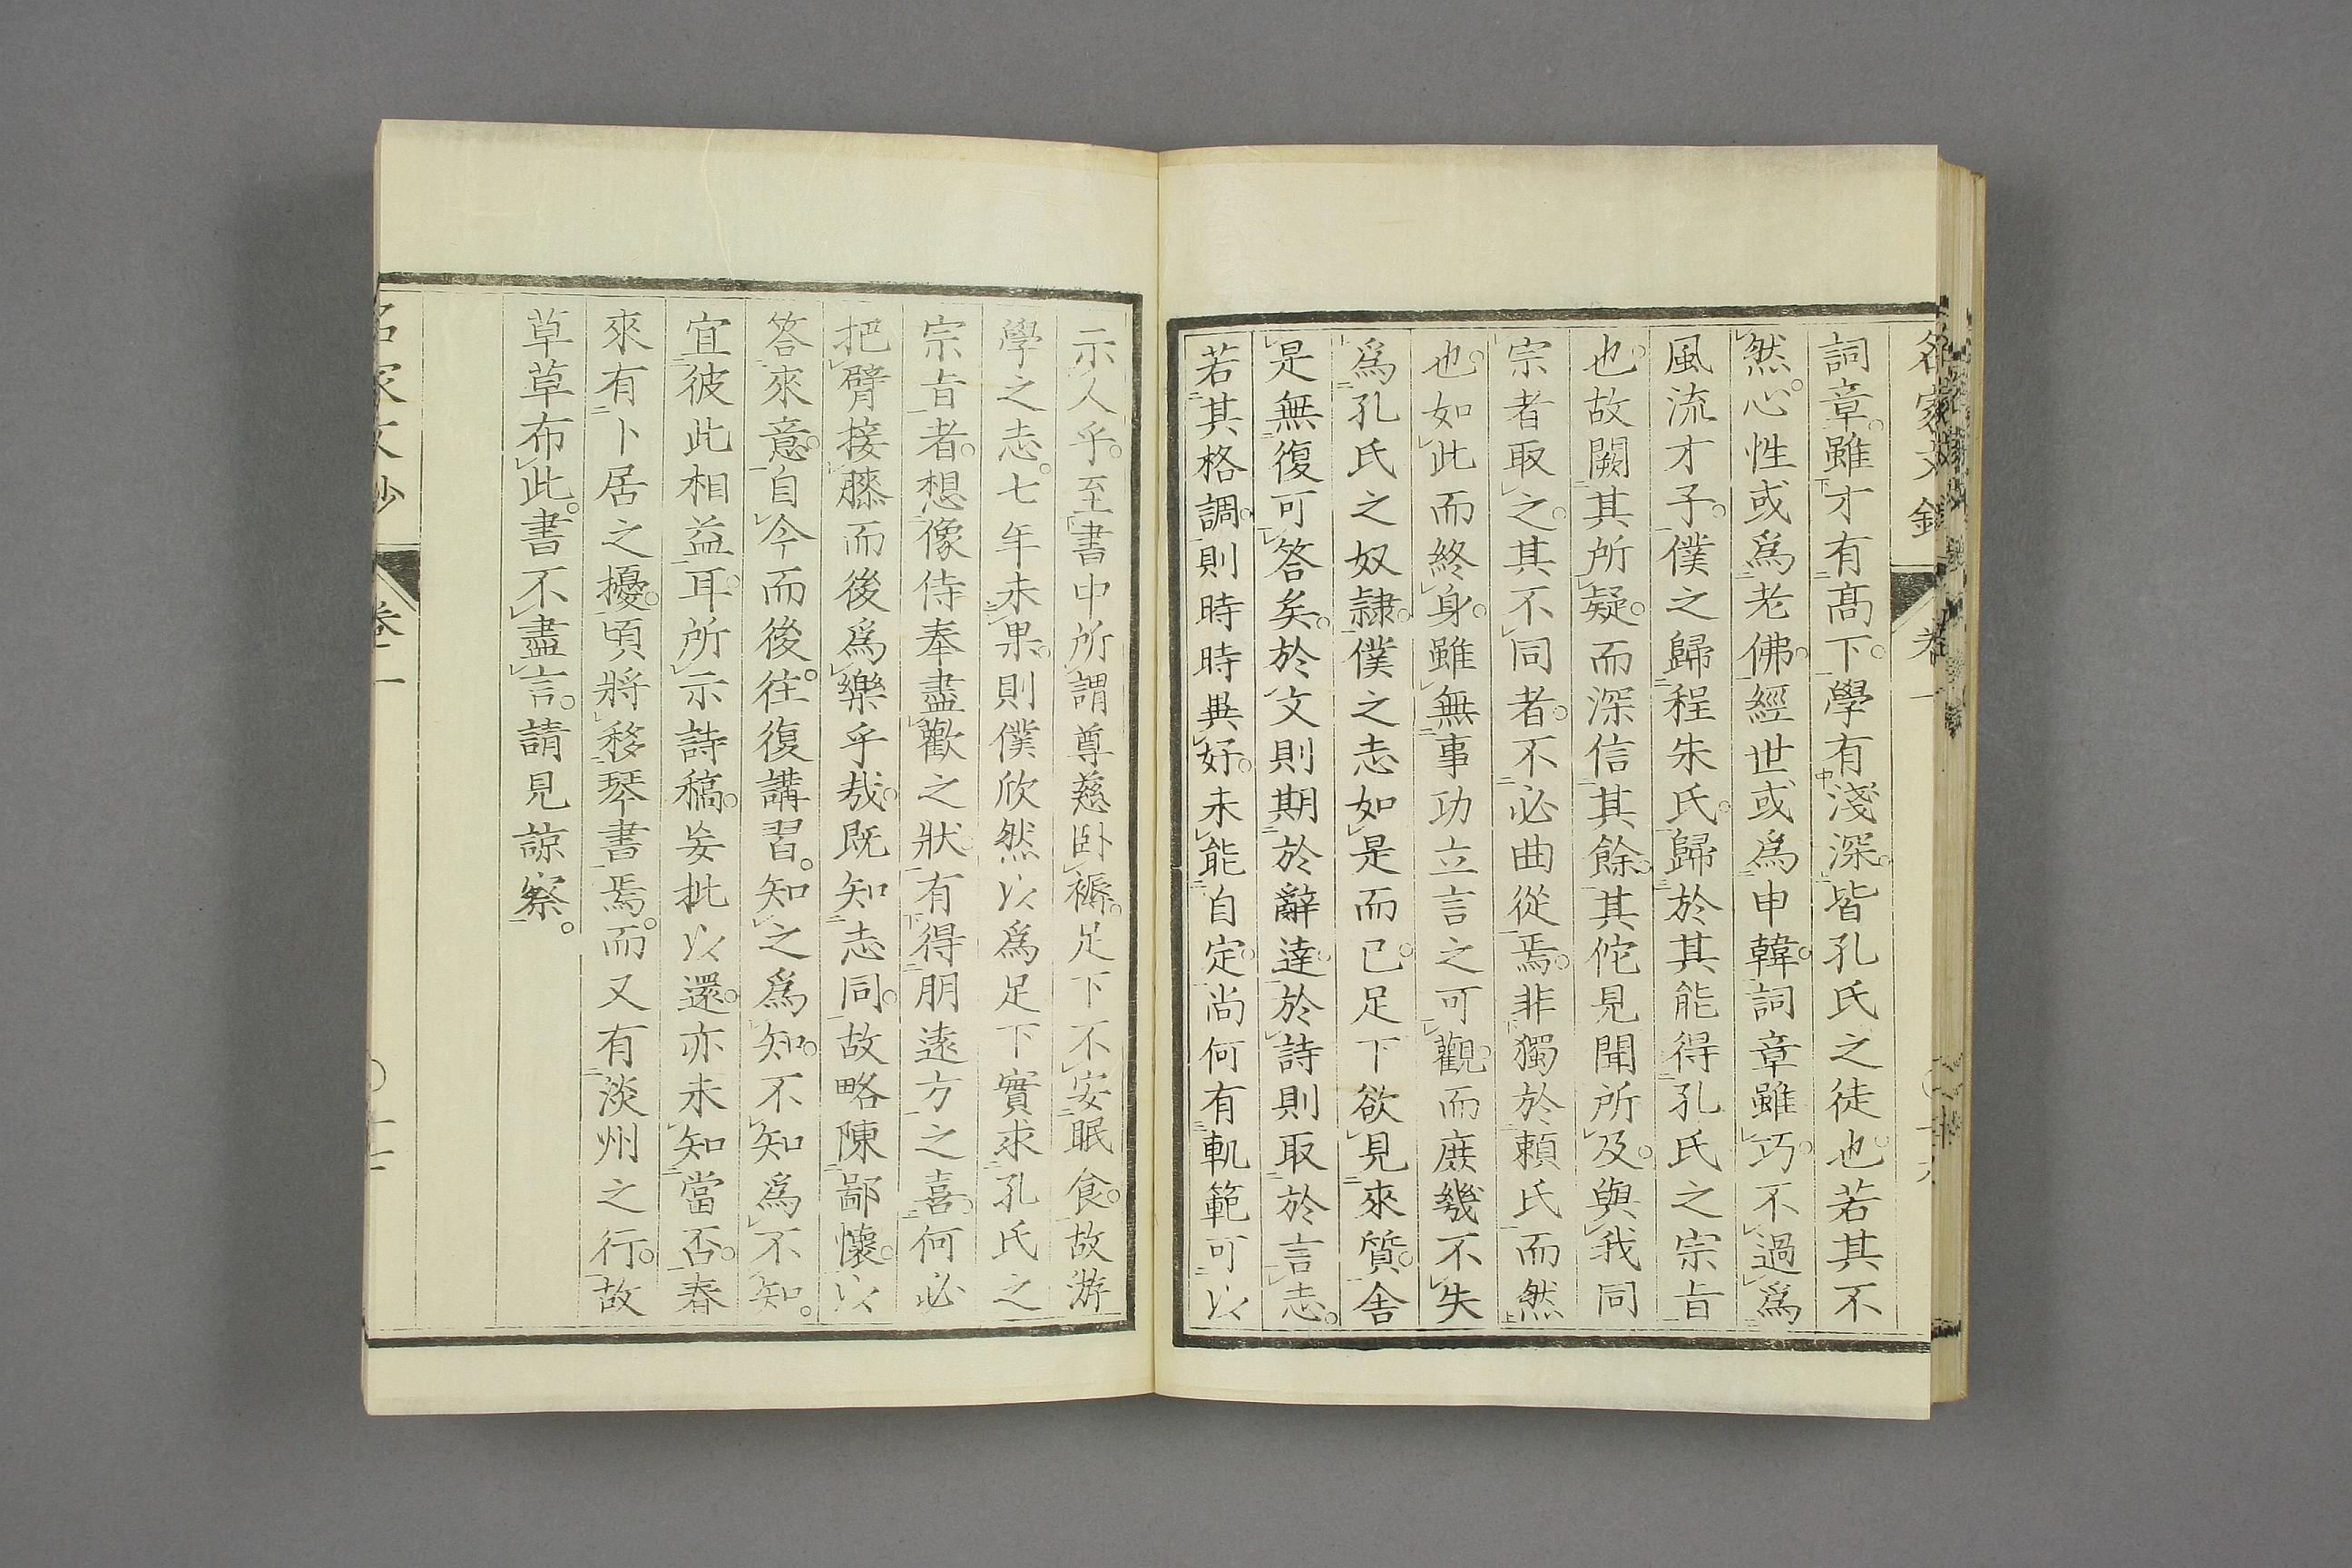 名家文鈔 卷一
詞章。雖才有高下。學有淺深。皆孔氏之徒也。若其不
然。心性或爲老佛。經世或爲申韓。詞章雖巧。不過爲
風流才子。僕之歸程朱氏。歸於其能得孔氏之宗旨
也。故闕其所疑。而深信其餘。其佗見聞所及。與我同
宗者取之。其不同者。不必曲從焉。非獨於賴氏而然
也。如此而終身。雖無事功立言之可觀。而庶幾不失
爲孔氏之奴隷。僕之志如是而已。足下欲見來質。舍
是無復可答矣。於文則期於辭達。於詩則取於言志。
若其格調。則時時異好。未能自定。尚何有軌範可以
示人乎。至書中所謂尊慈卧褥。足下不安眠食。故游
學之志。七年未果。則僕欣然以爲足下實求孔氏之
宗旨者。想像侍奉盡歡之狀。有得朋遠方之喜。何必
把臂接膝而後爲樂乎哉。既知志同。故略陳鄙懷。以
答來意。自今而後。往復講習。知之爲知。不知爲不知。
宜彼此相益耳。所示詩稿。妄批以還。亦未知當否。春
來有卜居之擾。頃將移琴書焉。而又有淡州之行。故
草草布此。書不盡言。請見諒察。
名家文鈔 卷一